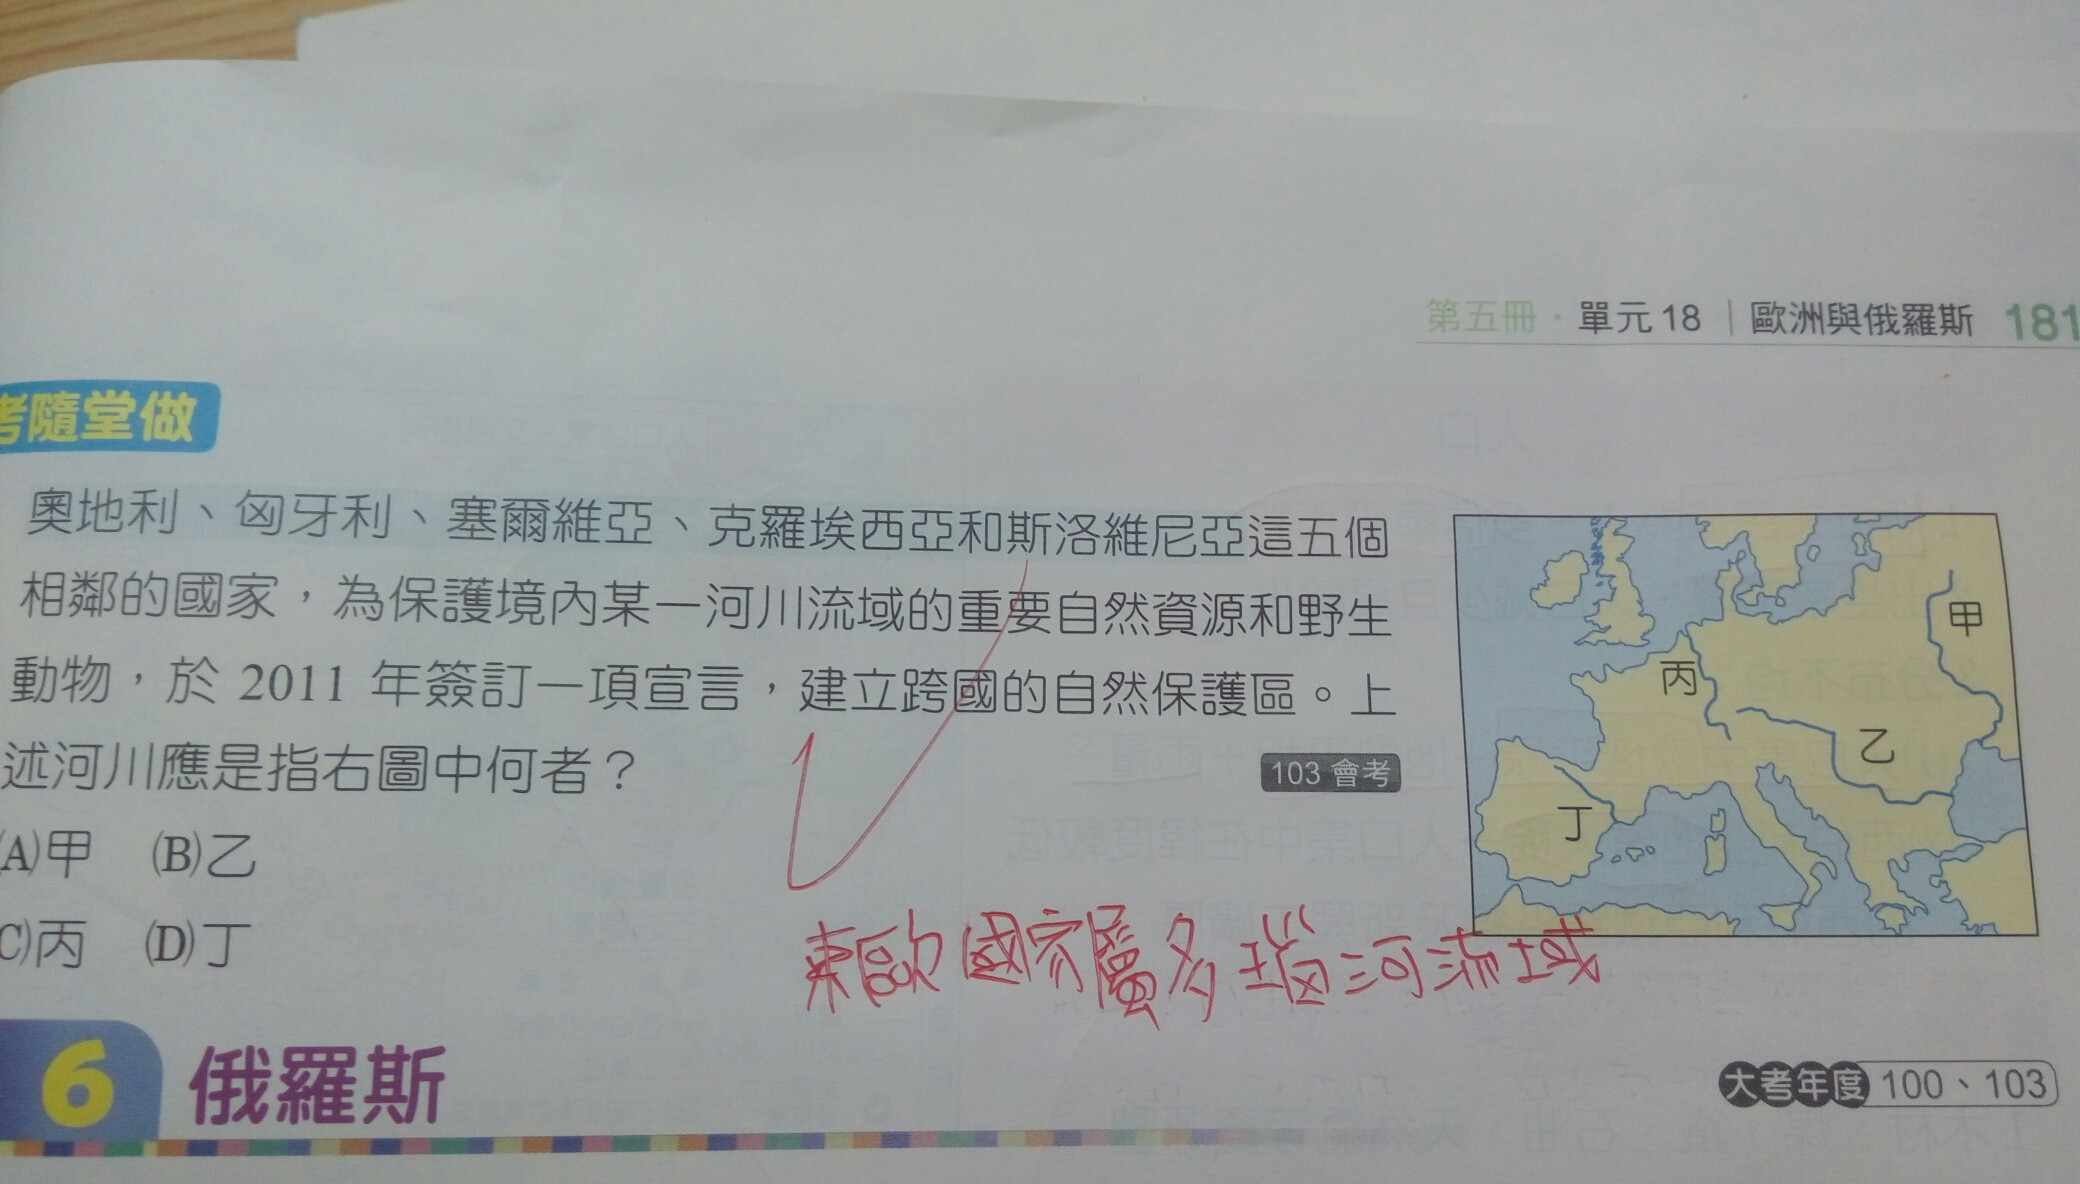 第五冊・單元18｜歐洲與俄羅斯 181
考隨堂做
奧地利、匈牙利、塞爾維亞、克羅埃西亞和斯洛維尼亞這五個
相鄰的國家，為保護境內某一河川流域的重要自然資源和野生
動物，於 2011 年簽訂一項宣言，建立跨國的自然保護區。上
述河川應是指右圖中何者？
103 會考
(A)甲 (B)乙
(C)丙 (D)丁
甲
丙
乙
丁
東歐國家屬多瑙河流域
6 俄羅斯
大考年度 100、103